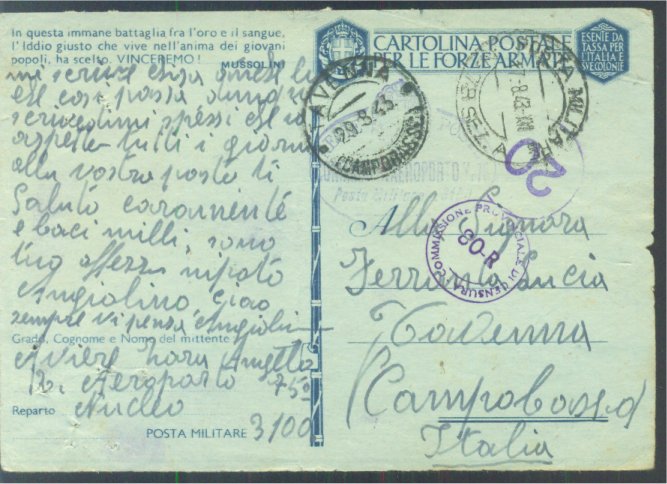 In questa immane battaglia fra l'oro e il sangue,
l'Iddio giusto che vive nell'anima dei giovani
popoli, ha scelto. VINCEREMO! MUSSOLINI
CARTOLINA POSTALE
PER LE FORZE ARMATE
ESENTE DA
TASSA PER
L'ITALIA E
LE COLONIE
mi scrive
e se cosi posta dunque
scrivetimi spessi
aspetto tutti i giorni
alla vostra posta ti
Saluto caramente
e baci milli, sono
tuo affezz nipoto
Angiolino ciao
sempre vi pensa Angiolin
Grado, Cognome e Nome del mittente
Aviere Angelo
Aeroporto
Reparto Nucleo
POSTA MILITARE 3100
29.8.43.
(CAMPOBASSO)
POSTA MILITARE
SEZ. A
8.43-XXI
20
COMMISSIONE PROVINCIALE DI CENSURA
80-R
Alla Signora
Ferrante Lucia
Tavenna
Campobasso
Italia